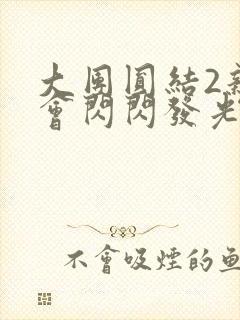 大團圓結2
會閃閃發光
不會吸煙的魚